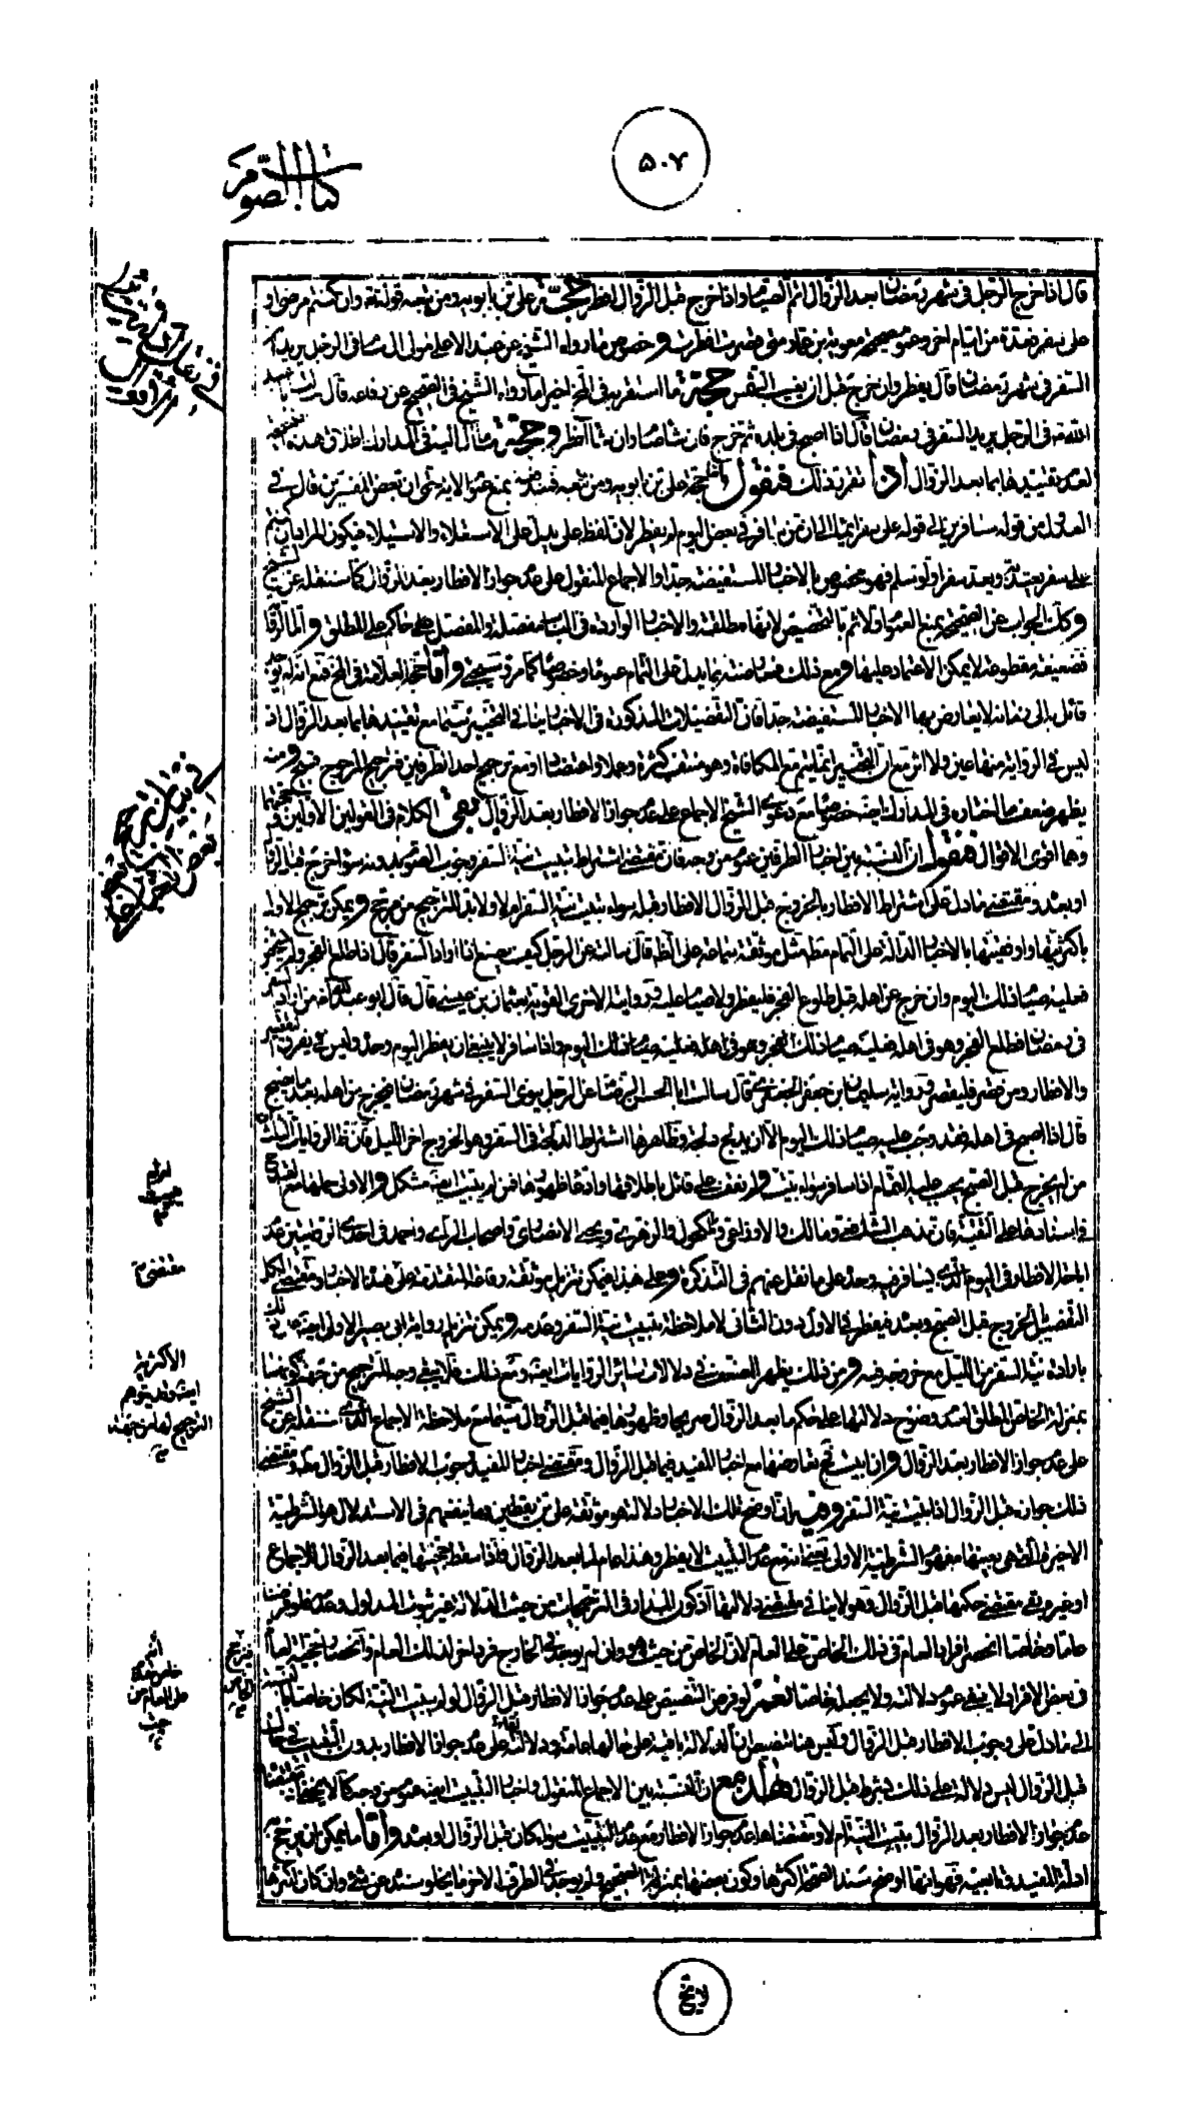 ۵۰۷
كتاب الصوم
قال اذا خرج الرجل فى شهر رمضان بعد الزوال اتم الصيام واذا خرج قبل الزوال افطر حجة على بن بابويه ومن تبعه قوله تعالى وان كنتم مرضى او
على سفر فعدة من ايام اخر وعموم صحيحة معوية بن متى قصرت افطرت وخصوص ما رواه الشيخ عن عبد الاعلى مولى ال سام فى الرجل يريد
السفر فى شهر رمضان قال يفطر وان خرج قبل ان تغيب الشمس حجة ما استقر به فى اخيرا ما رواه الشيخ فى الصحيح عن رفاعة قال
الله فى الرجل يريد السفر فى رمضان قال اذا اصبح فى بلده ثم خرج فان شاء صام وان شاء افطر وحجة ما مال اليه فى المدارك اطلاق هذه
لعدم تقييدها بما بعد الزوال اذا تقرر ذلك فنقول حجة على بن بابويه ومن تبعه بمنع عموم الاية حتى ان بعض المفسرين قال فى
العدول من قوله مسافرين الى قوله على سفر ايماء الى ان من سافر فى بعض اليوم لم يفطر لان لفظ على يدل على الاستعلاء والاستيلاء فيكون المراد
على سفر يعتد به ويعد سفرا ولو سلم فهو مخصوص بالاخبار المستفيضة جدا والاجماع المنقول على عدم جواز الافطار بعد الزوال كما سننقله عن
وكذا الجواب عن الصحيحة بمنع العموم اولا ثم بالتخصيص لانها مطلقة والاخبار الواردة فى الباب مفصلة والمفصل حاكم على المطلق واما
فضعيفة مقطوعة لا يمكن الاعتماد عليها ومع ذلك معارضة بما يدل على التمام عموما وخصوصا كما مر وسيجئ واما حجة العلامة فى فمع انه لم يوجد
قائل به الى زمانه لا يعارض بها الاخبار المستفيضة جدا فان التفصيلات المذكورة فى الاخبار ينافى التخيير سيما مع تقييدها بما بعد الزوال اذ
ليس فى الرواية منها عين ولا اثر مع ان التخيير انما يتم مع المكافاة وهو منتف كثرة وعملا واعتضادا ومع ترجيح احد الطرفين فترجيح المرجوح قبيح ومنه
يظهر ضعف ما اختاره فى المدارك ايضا خصوصا مع دعوى الشيخ الاجماع على عدم جواز الافطار بعد الزوال بقى الكلام فى القولين الاولين
وهما اقوى الاقوال فنقول ان النسبة بين اخبار الطرفين عموم من وجه فان مقتضى اشتراط تبييت نية السفر وجوب الصوم بدونه سواء خرج قبل الزوال
او بعده ومقتضى ما دل على اشتراط الافطار بالخروج قبل الزوال الافطار قبله سواء بيت نية السفر ام لا ولا بد للترجيح من مرجح ويمكن ترجيح الاول
باكثريتها واوفقيتها بالاخبار الدالة على التمام مثل موثقة سماعة قال سالته عن الرجل كيف يصنع اذا اراد السفر قال اذا طلع الفجر ولم
فعليه صيام ذلك اليوم وان خرج من اهله قبل طلوع الفجر فليفطر ولا صيام عليه وروايته الاخرى القوية بعثمان بن عيسى قال قال ابو عبد الله من اراد السفر
فى رمضان فطلع الفجر وهو فى اهله فعليه صيام ذلك اليوم واذا سافر لا ينبغى ان يفطر اليوم وحده وليس يفترق التقصير
والافطار ومن قصر فليفطر ورواية سليمان بن جعفر الجعفرى قال سالت ابا الحسن الرضا عن الرجل ينوى السفر فى شهر رمضان فيخرج من اهله بعد ما يصبح
قال اذا اصبح فى اهله فقد وجب عليه صيام ذلك اليوم الا ان يدلج دلجة وظاهرها اشتراط الدلجة فى السفر وهو الخروج اخر الليل فان هذه الروايات الثلاث
من لم يخرج قبل الصبح يجب عليه التمام اذا سافر سواء بيت ولم نقف على قائل باطلاقها وادعاء ظهورها فمن لم يبيت النية مشكل والاولى حملها
على التقية فان مذهب الشافعى ومالك والاوزاعى ومكحول والزهرى ويحيى الانصارى واصحاب الراى واحمد فى احدى الروايتين
الافطار فى اليوم الذى يسافر فيه وحده على ما نقل عنهم فى التذكرة وعلى هذا فيمكن تنزيل موثقة رفاعة المتقدمة على هذه الاخبار ومقتضى الكل
التفصيل الخروج قبل الصبح وبعده فيفطر فى الاول دون الثانى لا ملاحظة تبييت نية السفر وعدمه ويمكن تنزيل رواية ابى بصير الاولى ايضا على ذلك
بارادة نية السفر من الليل مع خروجه فيه ومن ذلك يظهر الضعف فى دلالات سائر الروايات ايضا ومع ذلك فلا يبقى وجه الترجيح من جهة كونها
بمنزلة الخاص المطلق لعدم وضوح دلالتها على حكم ما بعد الزوال صريحا وظهورها فيما قبل الزوال سيما مع ملاحظة الاجماع الذى سننقله عن الشيخ
على عدم جواز الافطار بعد الزوال وان بيت تعارضها مع اخبار المفيد فيما قبل الزوال ومقتضى اخبار المفيد وجوب الافطار قبل الزوال
ذلك جوازه قبل الزوال اذا بيت نية السفر وفيه ان اوضح تلك الاخبار دلالة هو موثقة على بن يقطين وما ينفعهم فى الاستدلال هو الشرطية
الاخيرة التى هى بعينها مفهوم الشرطية الاولى يعنى انه مع عدم التبييت لا يفطر وهذا عام لما بعد الزوال فاذا سقط حجيتها فيما بعد الزوال للاجماع
او غيره بقى مقتضى حكمها قبل الزوال وهو لا ينافى مقتضى دلالتها اذ كون المدار فى الترجيحات من حيث الدلالة غير ثبوت المدلول وعدمه
عاما وخاصا انحصر افراد العام فى ذلك الخاص قدم على العام لان الخاص من حيث هو وان لم يوجد فى الخارج فرد اخر لذلك العام وانحصار حجية العام
فى بعض الافراد لا ينفى عموم دلالته ولا يجعله خاصا نعم لو فرض التنصيص على عدم جواز الافطار قبل الزوال لو لم يبيت النية لكان خاصا بالنسبة
الى ما دل على وجوب الافطار قبل الزوال وليس هنا تنصيص لان الدلالة باقية على حالها عامة ودلالته على عدم جواز الافطار بدون التبييت
قبل الزوال ليس دلالة على ذلك بشرط قبل الزوال هذا مع ان النسبة بين الاجماع المنقول واخبار التبييت ايضا عموم من وجه كما لا يخفى
عدم جواز الافطار بعد الزوال بيت النية ام لا ومقتضاها عدم جواز الافطار مع عدم التبييت سواء كان قبل الزوال او بعده واما ما يمكن ان يرجح
ادلة المفيد وتابعيه فهو انها اوضح سندا لصحة اكثرها وكون بعضها بمنزلة الصحيح ولم يوجد فى الطرف الاخر ما يخلو سنده عن شئ وان كان اكثرها
مقتضى
الاكثرية
ايضا وقد يتوهم
الترجيح لها من جهة
خاص
على العام من
حيث